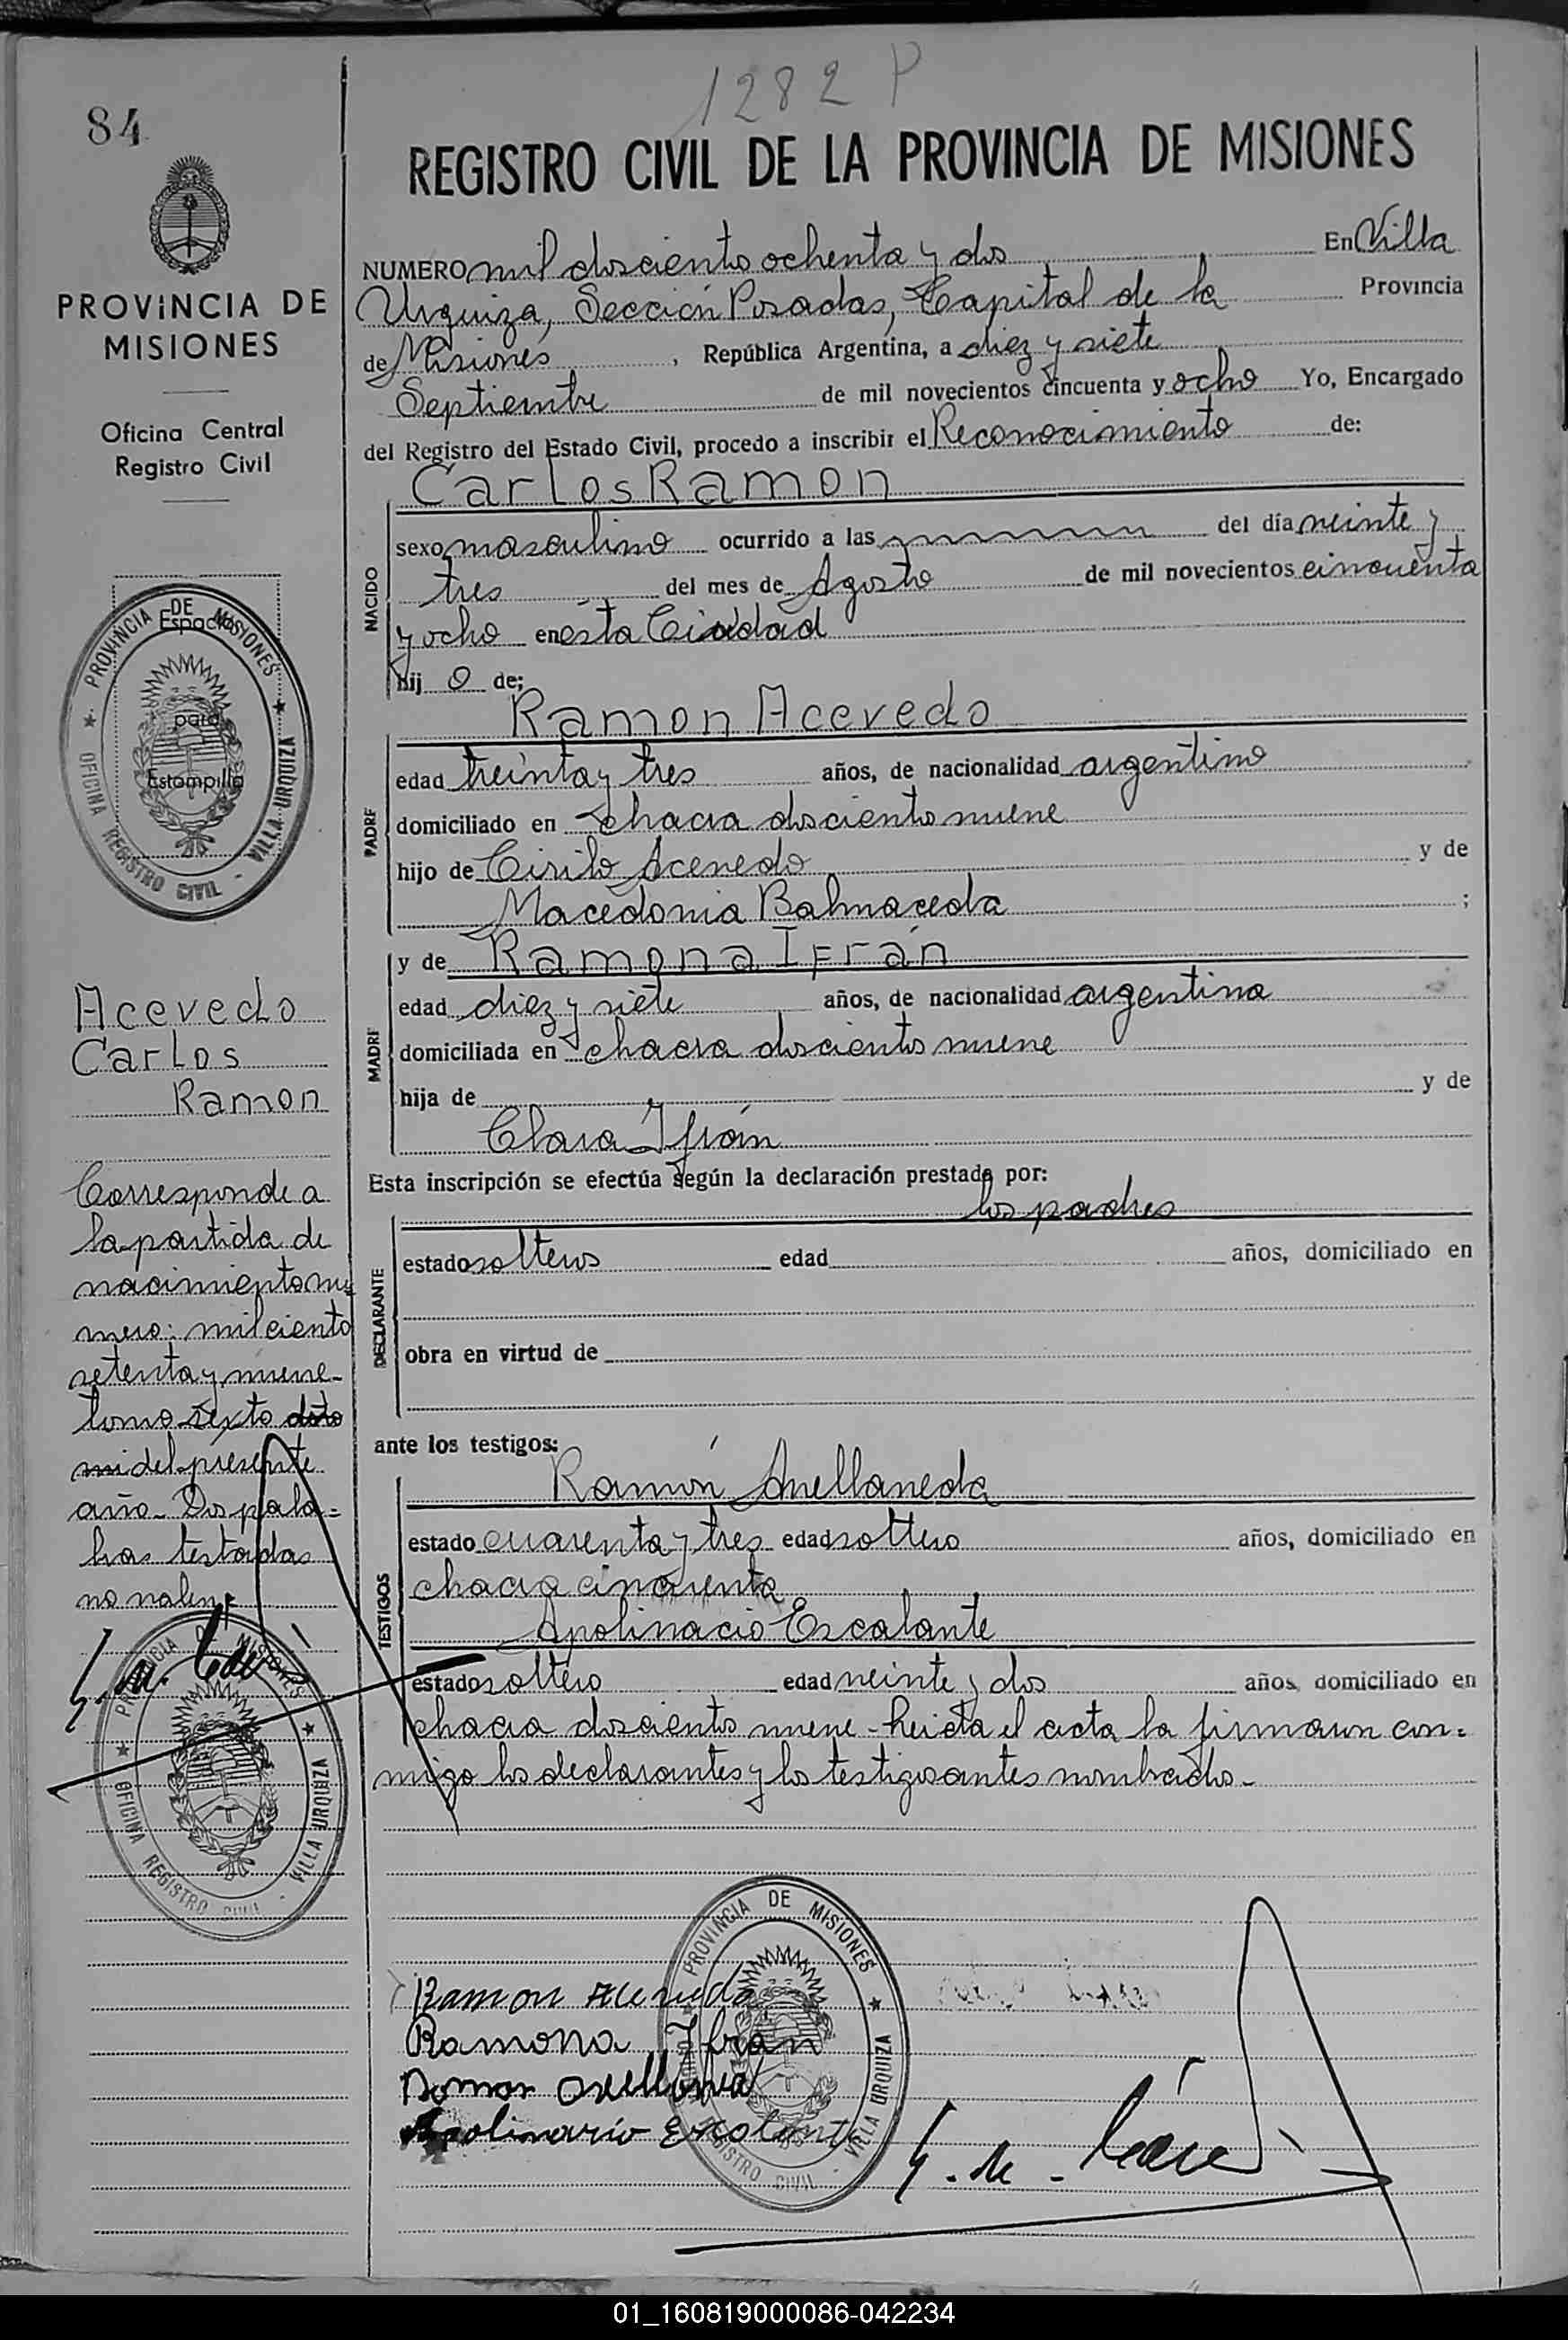 1282 P
84
REGISTRO CIVIL DE LA PROVINCIA DE MISIONES
PROVINCIA DE
MISIONES
Oficina Central
Registro Civil
PROVINCIA DE MISIONES
Espacio
para
Estampilla
OFICINA REGISTRO CIVIL - VILLA URQUIZA
Acevedo
Carlos
Ramon
Corresponde a
la partida de
nacimiento nu
mero: mil ciento
setenta y nueve-
tomo sexto
del presente
año- Dos pala=
bras testadas
no valen
PROVINCIA DE MISIONES
OFICINA REGISTRO CIVIL - VILLA URQUIZA
NUMERO mil dosciento ochenta y dos En Villa
Urquiza, Sección Posadas, Capital de la Provincia
de Misiones, República Argentina, a diez y siete
Septiembre de mil novecientos cincuenta y ocho Yo, Encargado
del Registro del Estado Civil, procedo a inscribir el Reconocimiento de:
Carlos Ramon
NACIDO
sexo masculino ocurrido a las del día veinte y
tres del mes de Agosto de mil novecientos cincuenta
y ocho en ésta Ciudad
hij o de;
Ramon Acevedo
PADRE
edad treinta y tres años, de nacionalidad argentino
domiciliado en chacra dosciento nueve
hijo de Cirilo Acevedo y de
Macedonia Balmaceda ;
y de Ramona Ifrán
MADRE
edad diez y siete años, de nacionalidad argentina
domiciliada en chacra dosciento nueve
hija de y de
Clara Ifrán
Esta inscripción se efectúa según la declaración prestada por:
los padres
DECLARANTE
estado solteros edad años, domiciliado en
obra en virtud de
ante los testigos:
Ramón Avellaneda
TESTIGOS
estado cuarenta y tres edad soltero años, domiciliado en
chacra cincuenta
Apolinacio Escalante
estado soltero edad veinte y dos años, domiciliado en
chacra dosciento nueve - leida el acta la firmaron con=
migo los declarantes y los testigos antes nombrados-
PROVINCIA DE MISIONES
Ramon Acevedo
Ramona Ifrán
Apolinario Escalante
REGISTRO CIVIL - VILLA URQUIZA
01_160819000086-042234